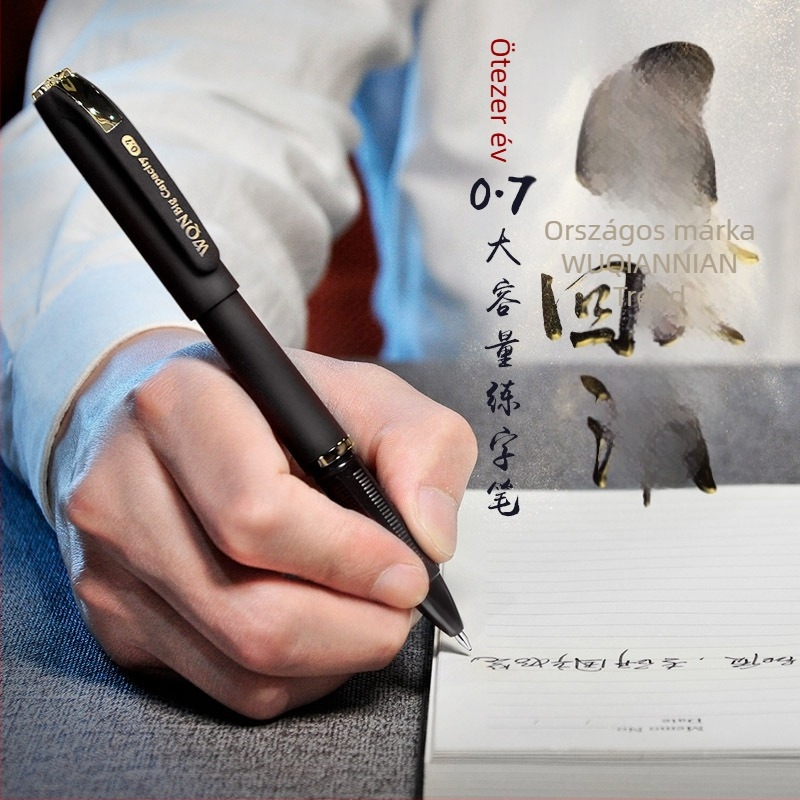 Ötezer év
0.7
大容量练字笔
Országos márka
WUQIANNIAN
Trend
回
WQN Big Capacity 0.7
Memo No.
Date